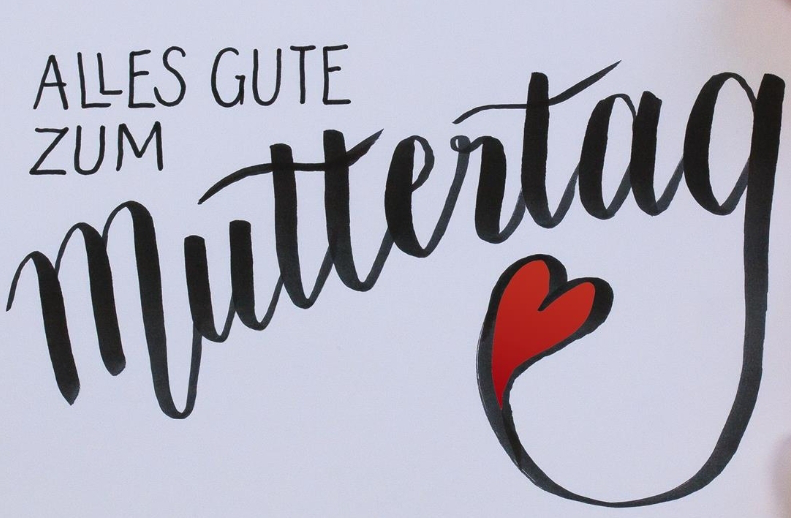 ALLES GUTE
ZUM
Muttertag